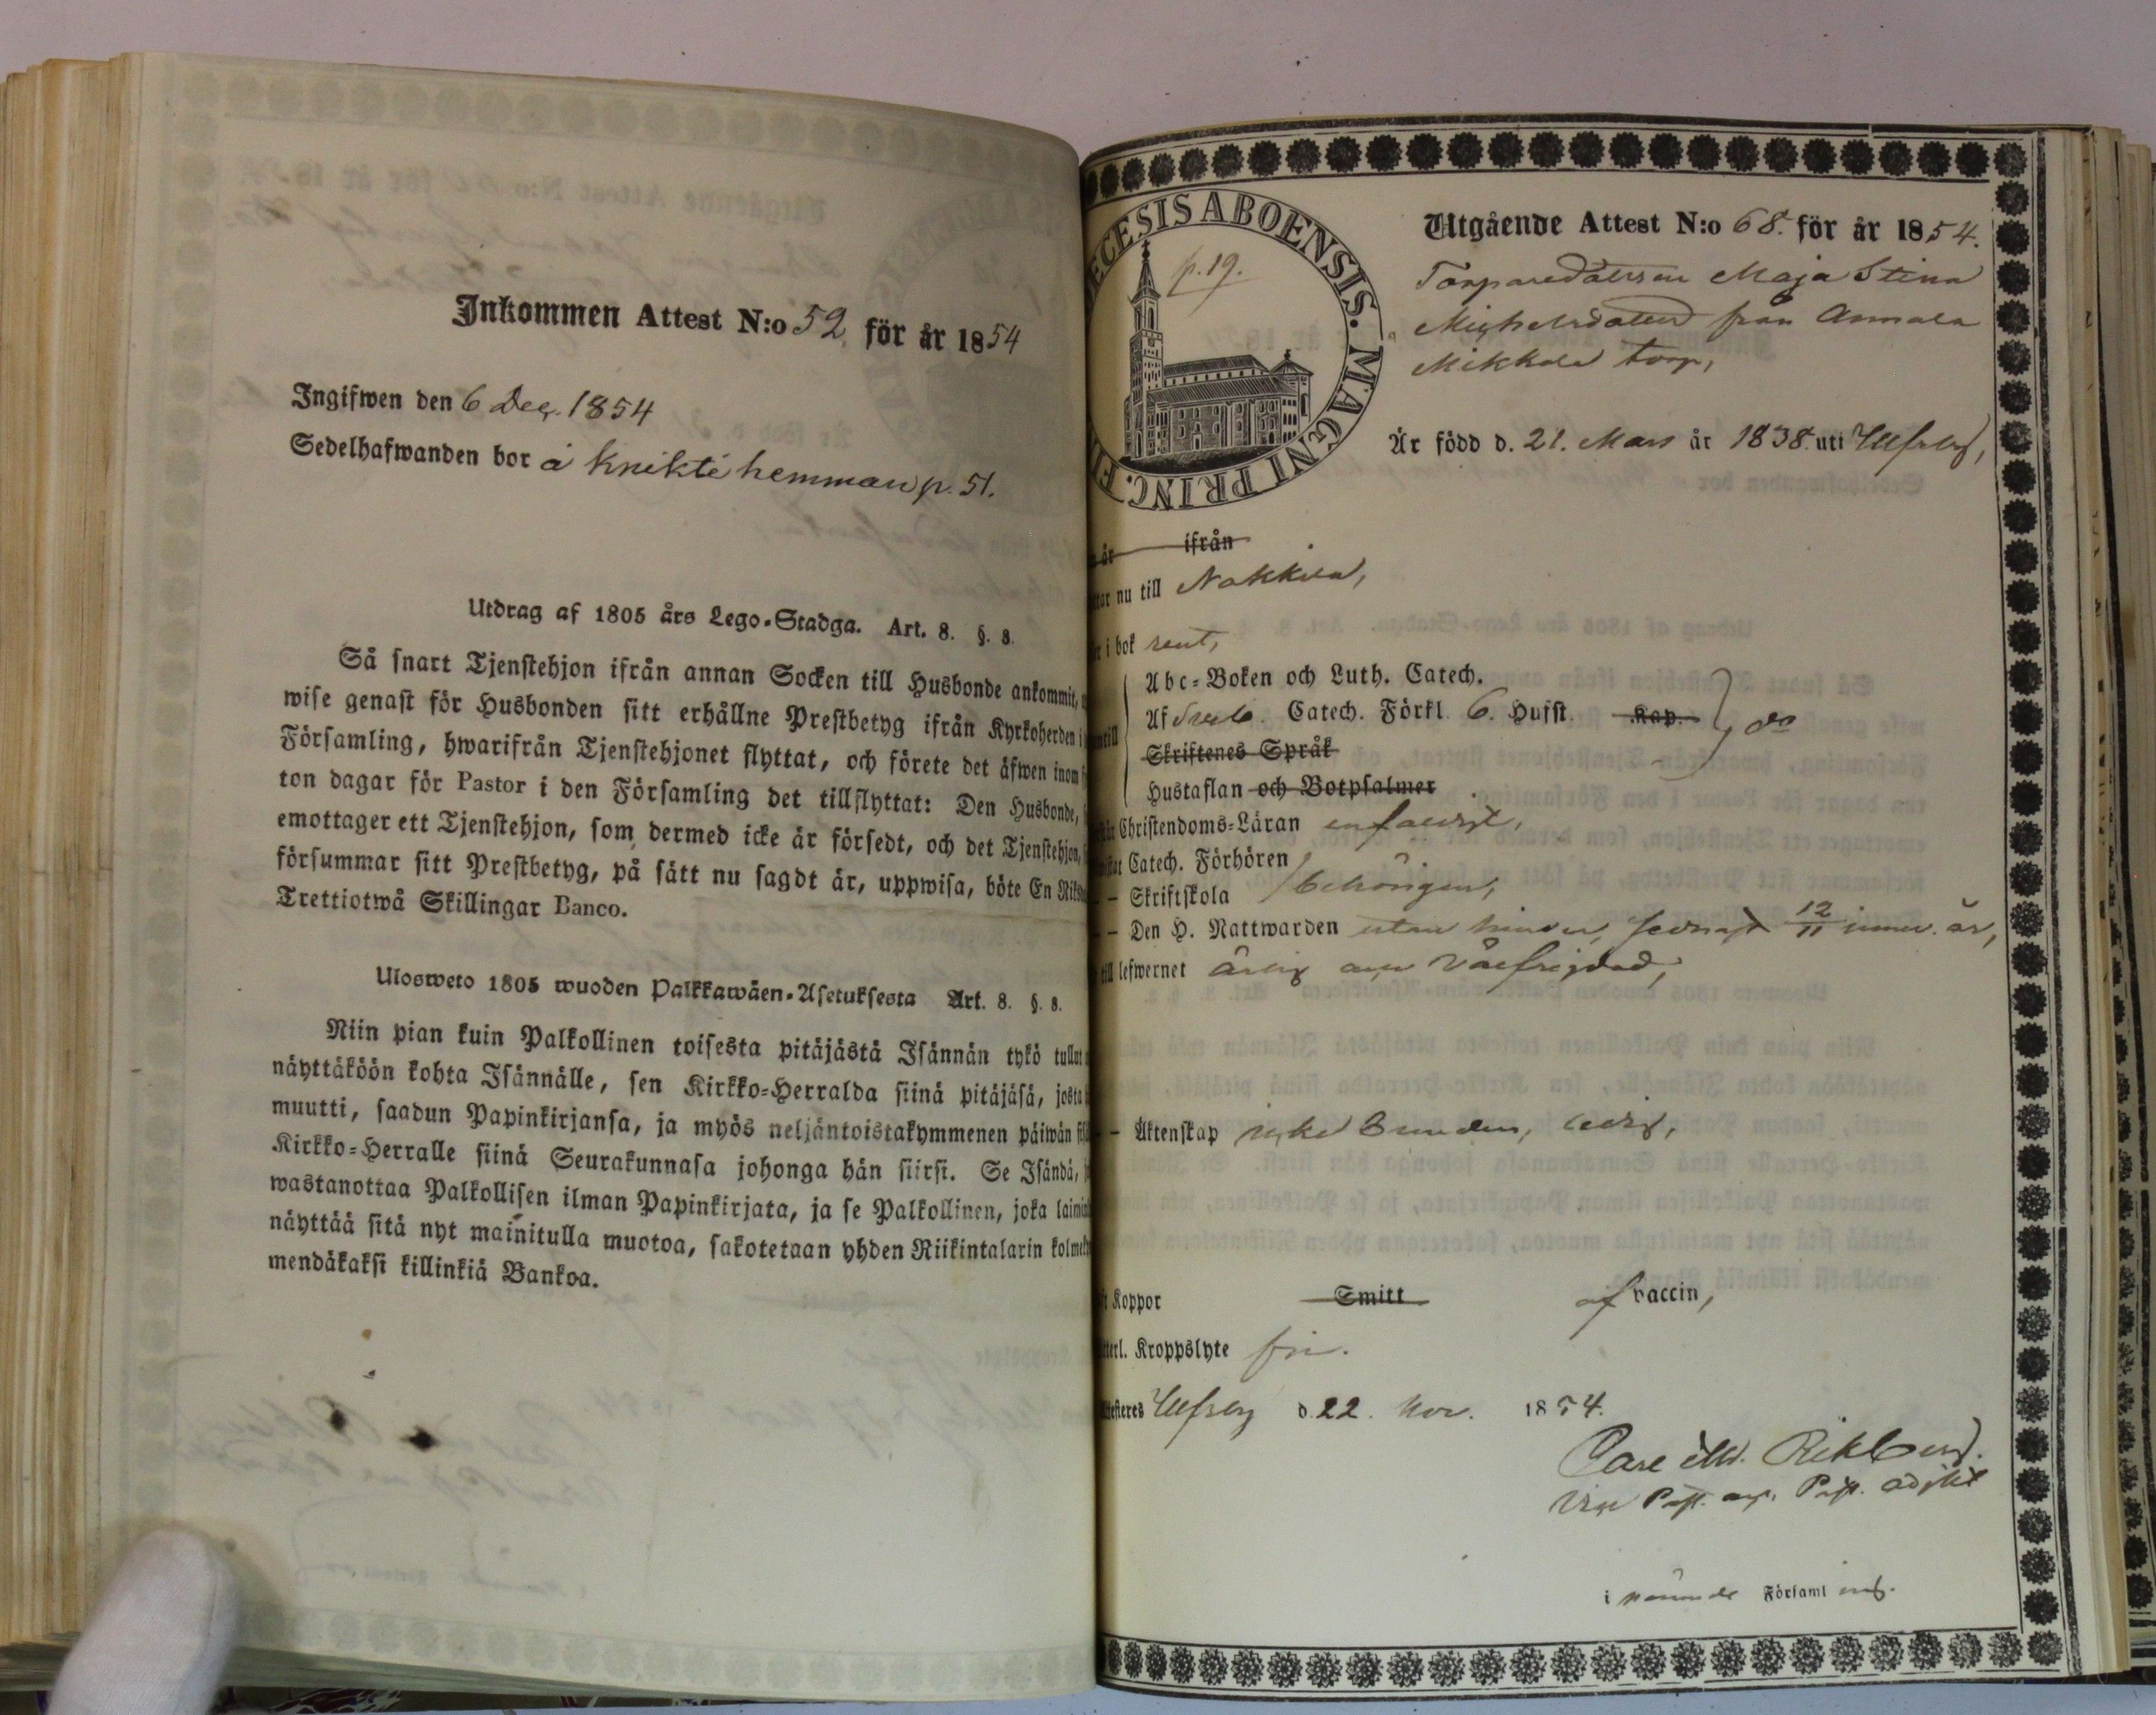 Inkommen Attest N:o 52 för år 1854
Ingifwen den 6 Dec. 1854
Sedelhafwanden bor å Knikti hemman p. 51.
Utdrag af 1805 års Lego-Stadga. Art. 8. §. 8.
Så snart Tjenstehjon ifrån annan Socken till Husbonde ankommit,
wise genast för Husbonden sitt erhållne Prestbetyg ifrån Kyrkoherden i
Församling, hwarifrån Tjenstehjonet flyttat, och förete det äfwen inom
ton dagar för Pastor i den Församling det tillflyttat: Den Husbonde,
emottager ett Tjenstehjon, som dermed icke är försedt, och det Tjenstehjon,
försummar sitt Prestbetyg, på sätt nu sagdt är, uppwisa, böte En
Trettiotwå Skillingar Banco.
Ulosweto 1805 wuoden Palkkawäen-Asetuksesta Art. 8. §. 8.
Niin pian kuin Palkollinen toisesta pitäjästä Isännän tykö tullut
näyttäköön kohta Isännälle, sen Kirkko-Herralda siinä pitäjäsä, josta
muutti, saadun Papinkirjansa, ja myös neljäntoistakymmenen päiwän
Kirkko-Herralle siinä Seurakunnasa johonga hän siirsi. Se Isändä,
wastanottaa Palkollisen ilman Papinkirjata, ja se Palkollinen, joka
näyttää sitä nyt mainitulla muotoa, sakotetaan yhden Riikintalarin
mendäkaksi killinkiä Bankoa.
ABOENSIS. MAGNI PRINC.
p. 19.
Utgående Attest N:o 68. för år 1854.
Torparedottren Maja Stina
Michelsdotter från Annala
Mikkola torp,
Är född d. 21. Mars år 1838. uti Ulfsby,
år ifrån
nu till Nakkila,
i bok rent,
Abc-Boken och Luth. Catech.
Af Sveb. Catech. Förkl. 6. Hufst. Kap. do
Skriftenes Språk
Hustaflan och Botpsalmer
Christendoms-Läran enfaldigt,
Catech. Förhören
— Skriftskola behörigen,
— Den H. Nattwarden utan hinder, sednast 12/11 innev. år,
till lefwernet ärlig och välfrejdad,
— Äktenskap icke bunden, ledig,
Koppor Smitt af vaccin,
Kroppslyte fri.
Ulfsby d. 22. Nov. 1854.
Carl M. Rikberg.
Vice Past. Past. adjkt
i nämnde Församl